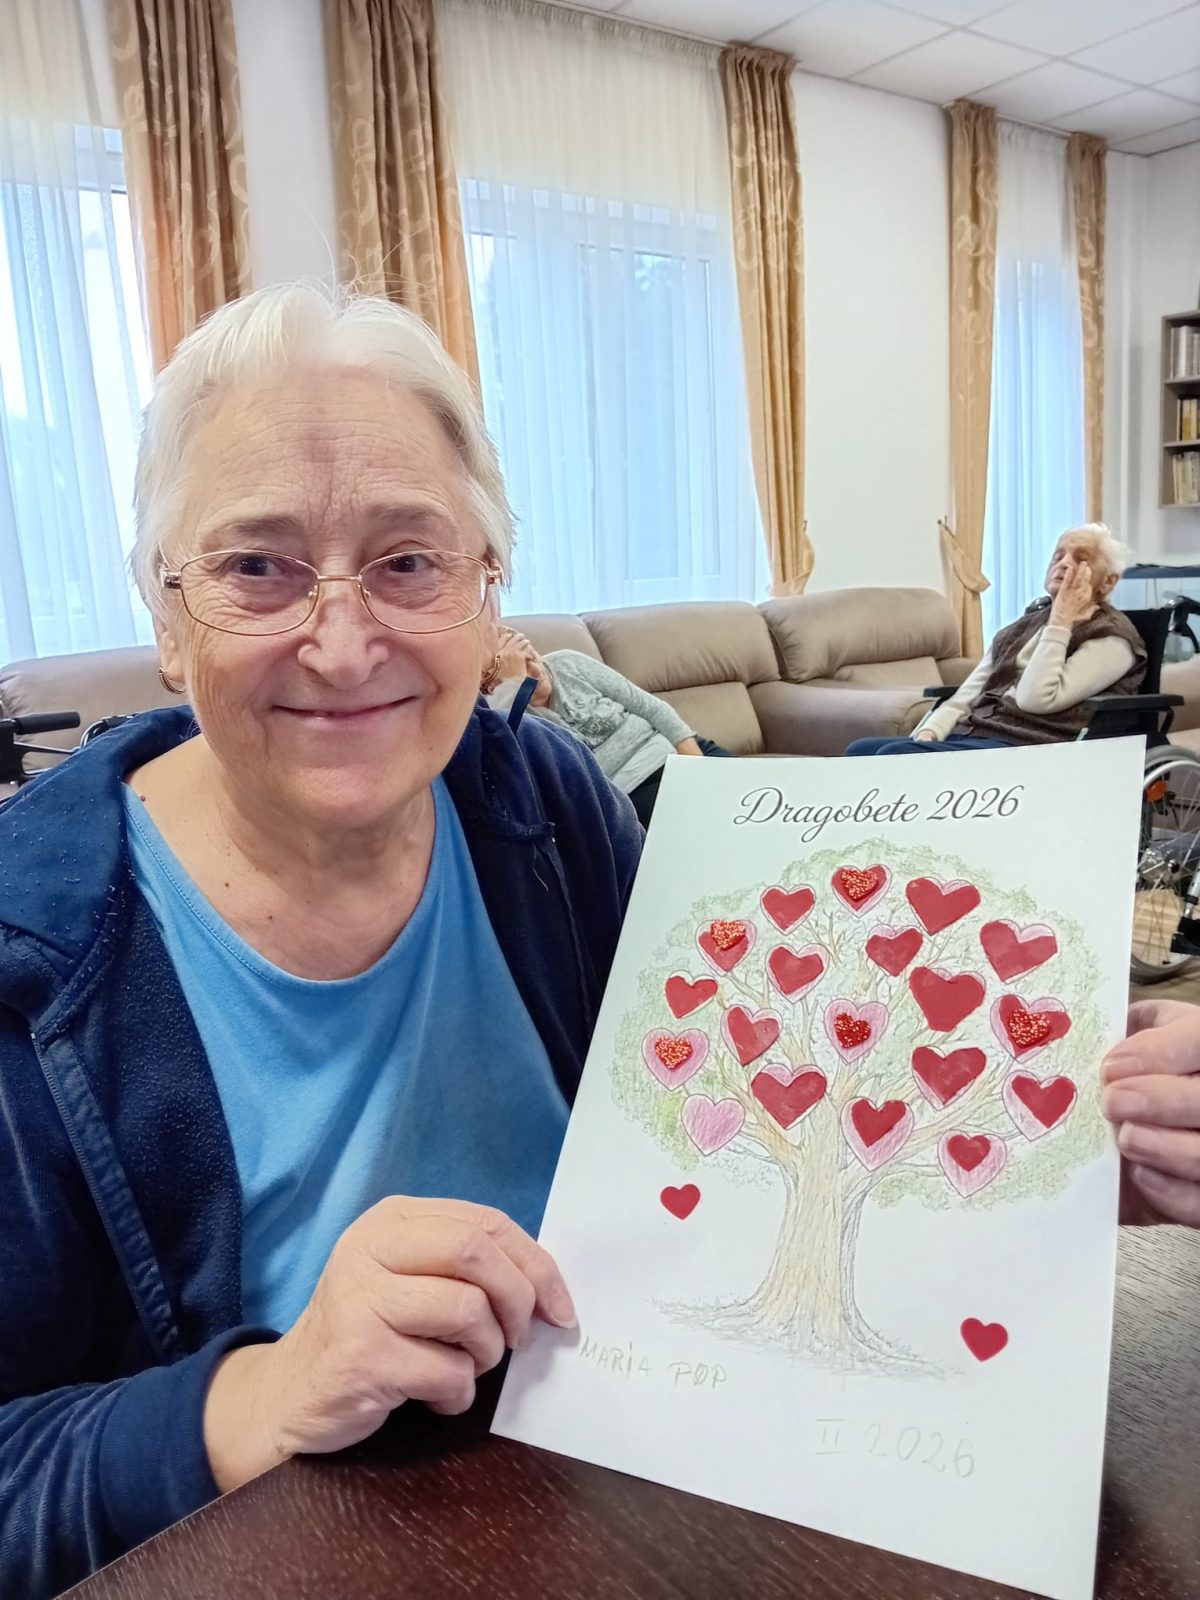 Dragobete 2026
MARiA POP
II 2026